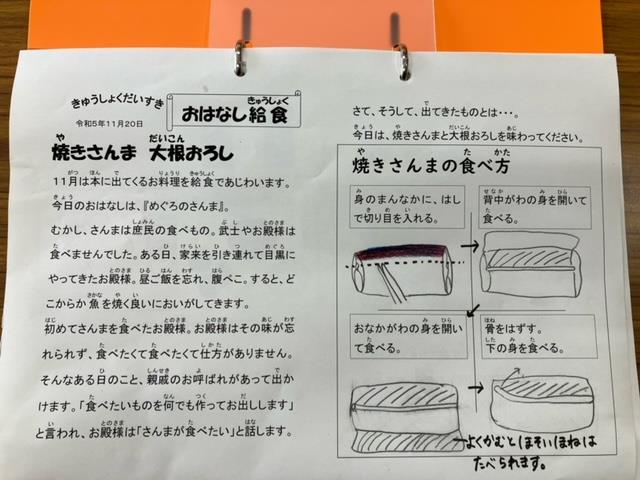 きゅうしょくだいすき
令和5年11月20日
おはなし給食
焼きさんま 大根おろし
11月は本に出てくるお料理を給食であじわいます。
今日のおはなしは、『めぐろのさんま』。
むかし、さんまは庶民の食べもの。武士やお殿様は
食べませんでした。ある日、家来を引き連れて目黒に
やってきたお殿様。昼ご飯を忘れ、腹ぺこ。すると、ど
こからか魚を焼く良いにおいがしてきます。
初めてさんまを食べたお殿様。お殿様はその味が忘
れられず、食べたくて食べたくて仕方がありません。
そんなある日のこと、親戚のお呼ばれがあって出か
けます。「食べたいものを何でも作ってお出しします」
と言われ、お殿様は「さんまが食べたい」と話します。
さて、そうして、出てきたものとは・・・。
今日は、焼きさんまと大根おろしを味わってください。
焼きさんまの食べ方
身のまんなかに、はし
で切り目を入れる。
背中がわの身を開いて
食べる。
おなかがわの身を開い
て食べる。
骨をはずす。
下の身を食べる。
よくかむとほそいほねは
たべられます。